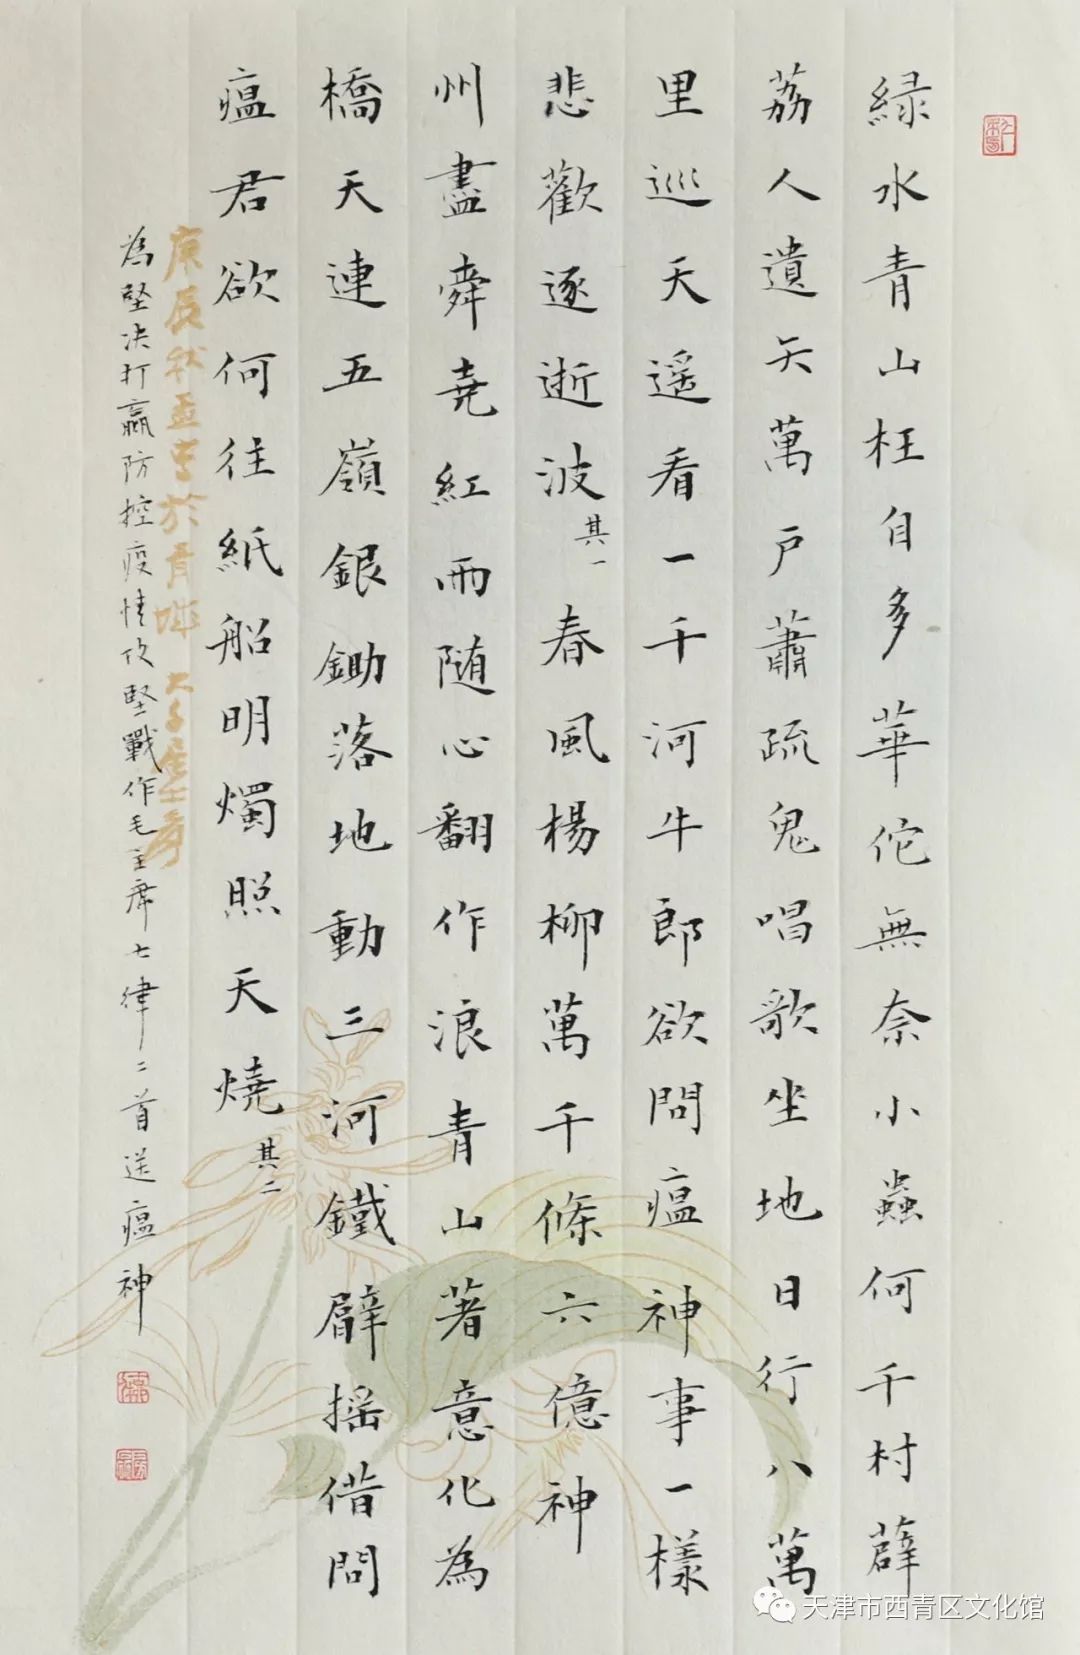 緑水青山枉自多華佗無奈小蟲何千村薜
荔人遺矢萬户蕭疏鬼唱歌坐地日行八萬
里巡天遥看一千河牛郎欲問瘟神事一樣
悲歡逐逝波其一春風楊柳萬千條六億神
州盡舜堯紅雨随心翻作浪青山著意化為
橋天連五嶺銀鋤落地動三河鐵臂摇借問
瘟君欲何往紙船明燭照天燒其二
為堅决打贏防控疫情攻堅戰作毛主席七律二首送瘟神
天津市西青区文化馆